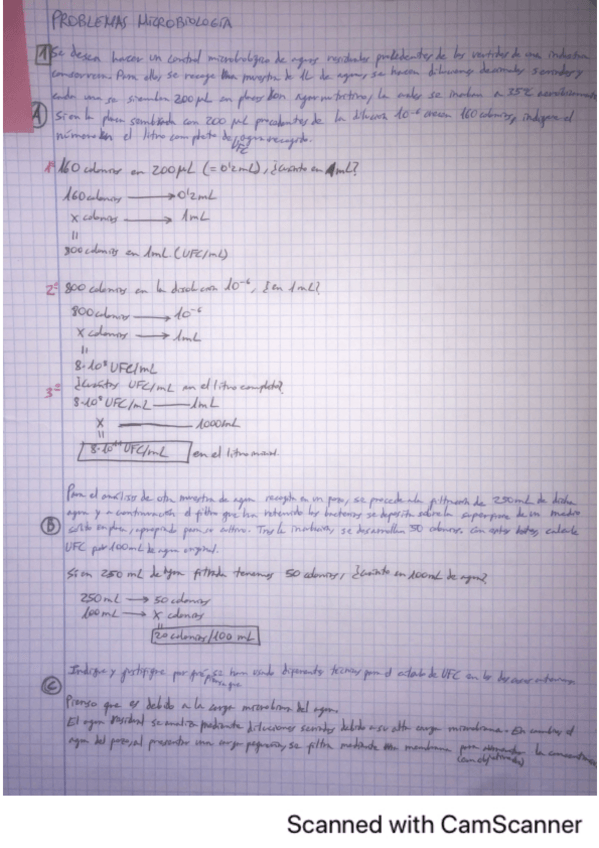 PROBLEMAS MICROBIOLOGÍA
1 Se desea hacer un control microbiológico de aguas residuales procedentes de los vertidos de una industria
conservera. Para ello se recoge una muestra de 1L de agua, se hacen diluciones decimales seriadas y
cada una se siembra 200 µL en placas con agar nutritivo, las cuales se incuban a 35ºC
A Si en la placa sembrada con 200 µL procedentes de la dilución 10⁻⁶ crecen 160 colonias, indique el
número en el litro completo de agua recogido.
UFC
1º 160 colonias en 200µL (=0'2mL), ¿cuánto en 1mL?
160 colonias → 0'2mL
x colonias → 1mL
=
800 colonias en 1mL (UFC/mL)
2º 800 colonias en la dilución 10⁻⁶, ¿en 1mL?
800 colonias → 10⁻⁶
x colonias → 1mL
=
8·10⁸ UFC/mL
3º ¿Cuántos UFC/mL en el litro completo?
8·10⁸ UFC/mL — 1mL
x — 1000mL
=
8·10¹¹ UFC/mL en el litro
B Para el análisis de otra muestra de agua recogida en un pozo, se procede a la filtración de 250mL de dicha
agua y a continuación el filtro que han retenido las bacterias se deposita sobre la superficie de un medio
en placa, apropiado para su cultivo. Tras la incubación, se desarrollan 50 colonias. Con estos datos, calcule
UFC por 100mL de agua original.
Si en 250 mL de agua filtrada tenemos 50 colonias, ¿cuánto en 100mL de agua?
250mL → 50 colonias
100mL → x colonias
=
20 colonias/100 mL
C Indique y justifique por qué se han usado diferentes técnicas para el cálculo de UFC en los dos casos
Pienso que es debido a la carga microbiana del agua.
El agua residual se analiza mediante diluciones seriadas debido a su alta carga microbiana. En cambio el
agua del pozo, al presentar una carga pequeña, se filtra mediante una membrana para la
Scanned with CamScanner